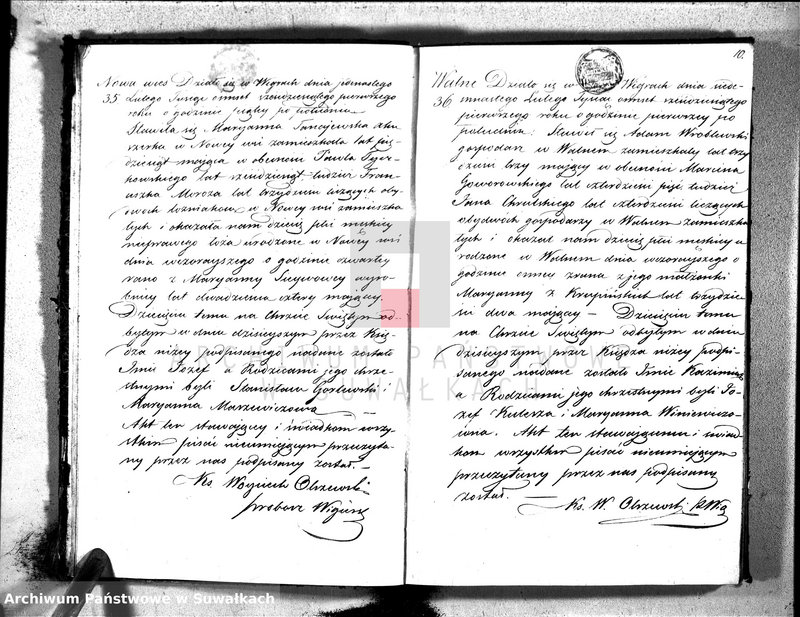 Nowa wies Działo się w Wigrach dnia
35 Lutego Tysiąc ośmset sześdziesiątego pierwszego
roku o godzinie piątey po południu
Stawiła się Maryanna
w Nowey wsi zamieszkała lat pię-
dziesiąt maiąca w obecności Pawła
lat sześdziesiąt tudzież Fran-
ciszka Moroza lat czydzieści liczących oby-
dwóch w Nowey wsi zamieszka-
łych i okazała nam dziecię płci męskiey
nieprawego łoża urodzone w Nowey wsi
dnia wczorayszego o godzinie czwartey
rano z Maryanny wyro-
bnicy lat dwadzieścia cztery maiącey.
Dziecięciu temu na Chrzcie Świętym od-
bytym w dniu dzisieyszym przez Xię-
dza niżey podpisanego nadane zostało
Imie Jozef a Rodzicami jego chrze-
stnymi byli Stanisław Gorlewski i
Maryanna Marzewiczowa
Akt ten stawaiący i świadkom wszy-
stkim pisać nieumieiącym przeczyta-
ny przez nas podpisany został. —
Ks. Woyciech Obrzewski
Proboszcz
10.
Walne Działo się w Wigrach dnia siede-
36 mnastego Lutego Tysiąc ośmset sześdziesiątego
pierwszego roku o godzinie pierwszey po
południu: Stawił się Adam Wroblewski
gospodarz w Walnem zamieszkały lat trzy-
dzieści trzy maiący w obecności Marcina
Goworowskiego lat czterdzieści pięć tudzież
Jana lat czterdzieści liczących
obydwóch gospodarzy w Walnem zamieszka-
łych i okazał nam dziecię płci męskiey u-
rodzone w Walnem dnia wczorayszego o
godzinie osmey zrana z jego małżonki
Maryanny z Krupińskich lat trzydzie-
ści dwa maiącey — Dziecięciu temu
na Chrzcie Świętym odbytym w dniu
dzisieyszym przez Xiędza niżey podpi-
sanego nadane zostało Imie Kazimierz
a Rodzicami jego chrzestnymi byli Jo-
zef Kulesza i Maryanna Winiewiczo-
wna. Akt ten stawaiącemu i świad-
kom wszystkim pisać nieumieiącym
przeczytany przez nas podpisany
został. — Ks. W. Obrzewski
ARCHIWUM PAŃSTWOWE
W SUWAŁKACH
Archiwum Państwowe w Suwałkach